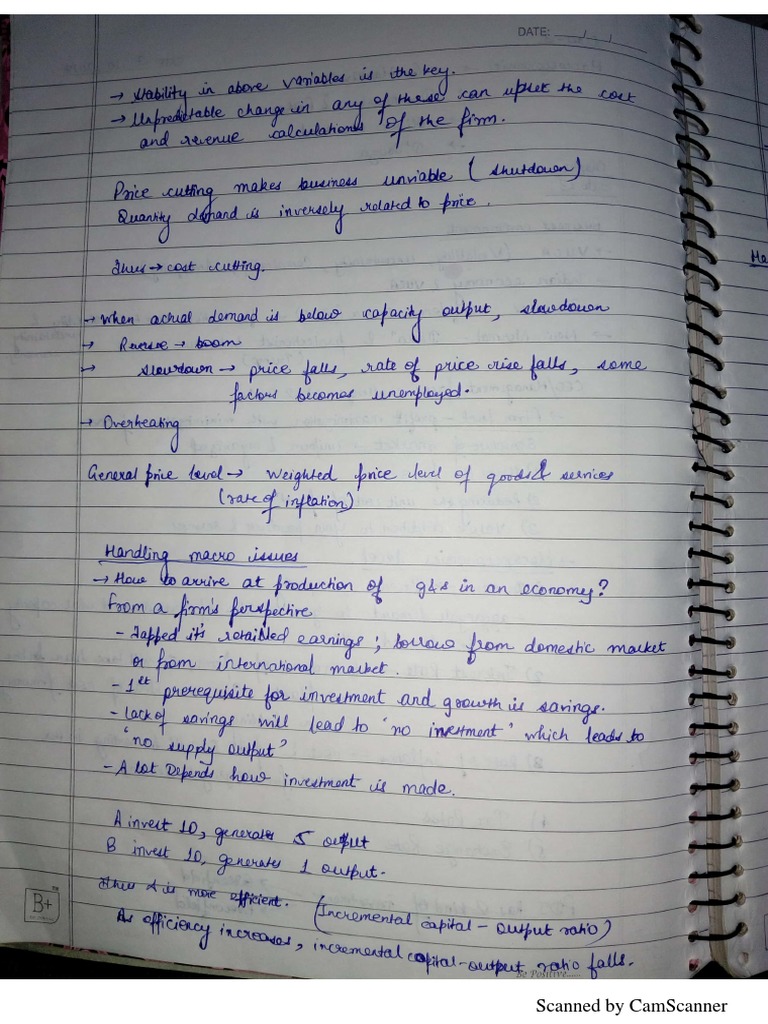 DATE: __/__/__
→ Stability in above variables is the key.
→ Unpredictable change in any of these can upset the cost
and revenue calculations of the firm.
Price cutting makes business unviable (shutdown)
Quantity demand is inversely related to price.
Thus → cost cutting.
→ When actual demand is below capacity output, slowdown
→ Reverse → boom
→ slowdown → price falls, rate of price rise falls, some
factors becomes unemployed.
→ Overheating
General price level → Weighted price level of goods & services
(rate of inflation)
Handling macro issues
→ How to arrive at production of g&s in an economy?
From a firm's perspective
- Tapped it's retailed earnings; borrow from domestic market
or from international market.
- 1st prerequisite for investment and growth is savings.
- lack of savings will lead to 'no investment' which leads to
'no supply output'
- A lot Depends how investment is made.
A invest 10, generates 5 output
B invest 10, generates 1 output.
Thus A is more efficient. (Incremental capital - output ratio)
As efficiency increases, incremental capital-output ratio falls.
B+
Be Positive......
Ha
Scanned by CamScanner